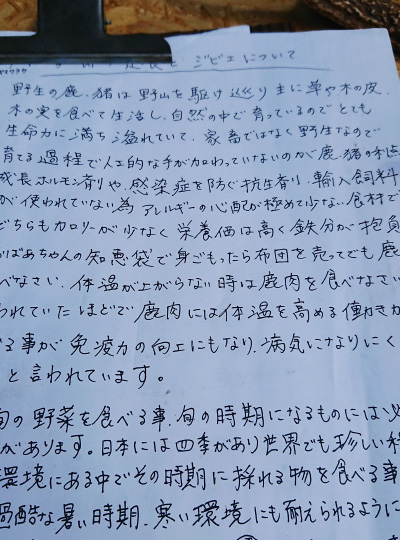 ジビエについて
野生の鹿、猪は野山を駆け巡り主に草や木の皮、
木の実を食べて生活し、自然の中で育っているのでとても
生命力に満ち溢れていて、家畜ではなく野生なので
育てる過程で人工的な手が加わっていないのが鹿、猪の利点
成長ホルモン剤や、感染症を防ぐ抗生剤、輸入飼料
が使われていない為アレルギーの心配が極めて少ない食材で
どちらもカロリーが少なく栄養価は高く鉄分が
ばあちゃんの知恵袋で身ごもったら布団を売ってでも鹿
べなさい、体温が上がらない時は鹿肉を食べなさい
われていたほどで鹿肉には体温を高める働きが
る事が免疫力の向上にもなり、病気になりにく
と言われています。
旬の野菜を食べる事、旬の時期になるものには必
があります。日本には四季があり世界でも珍しい
環境にある中でその時期に採れる物を食べる事
過酷な暑い時期、寒い環境にも耐えられるように